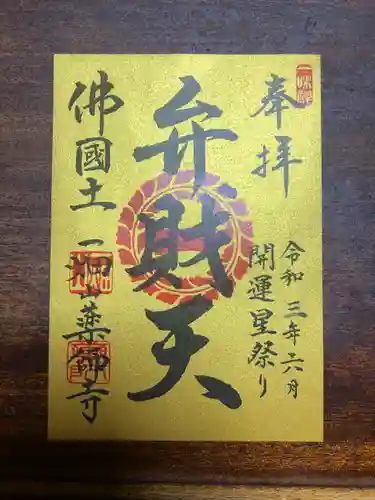 奉拝
令和三年六月
開運星祭り
弁財天
佛國土
一畑山薬師寺